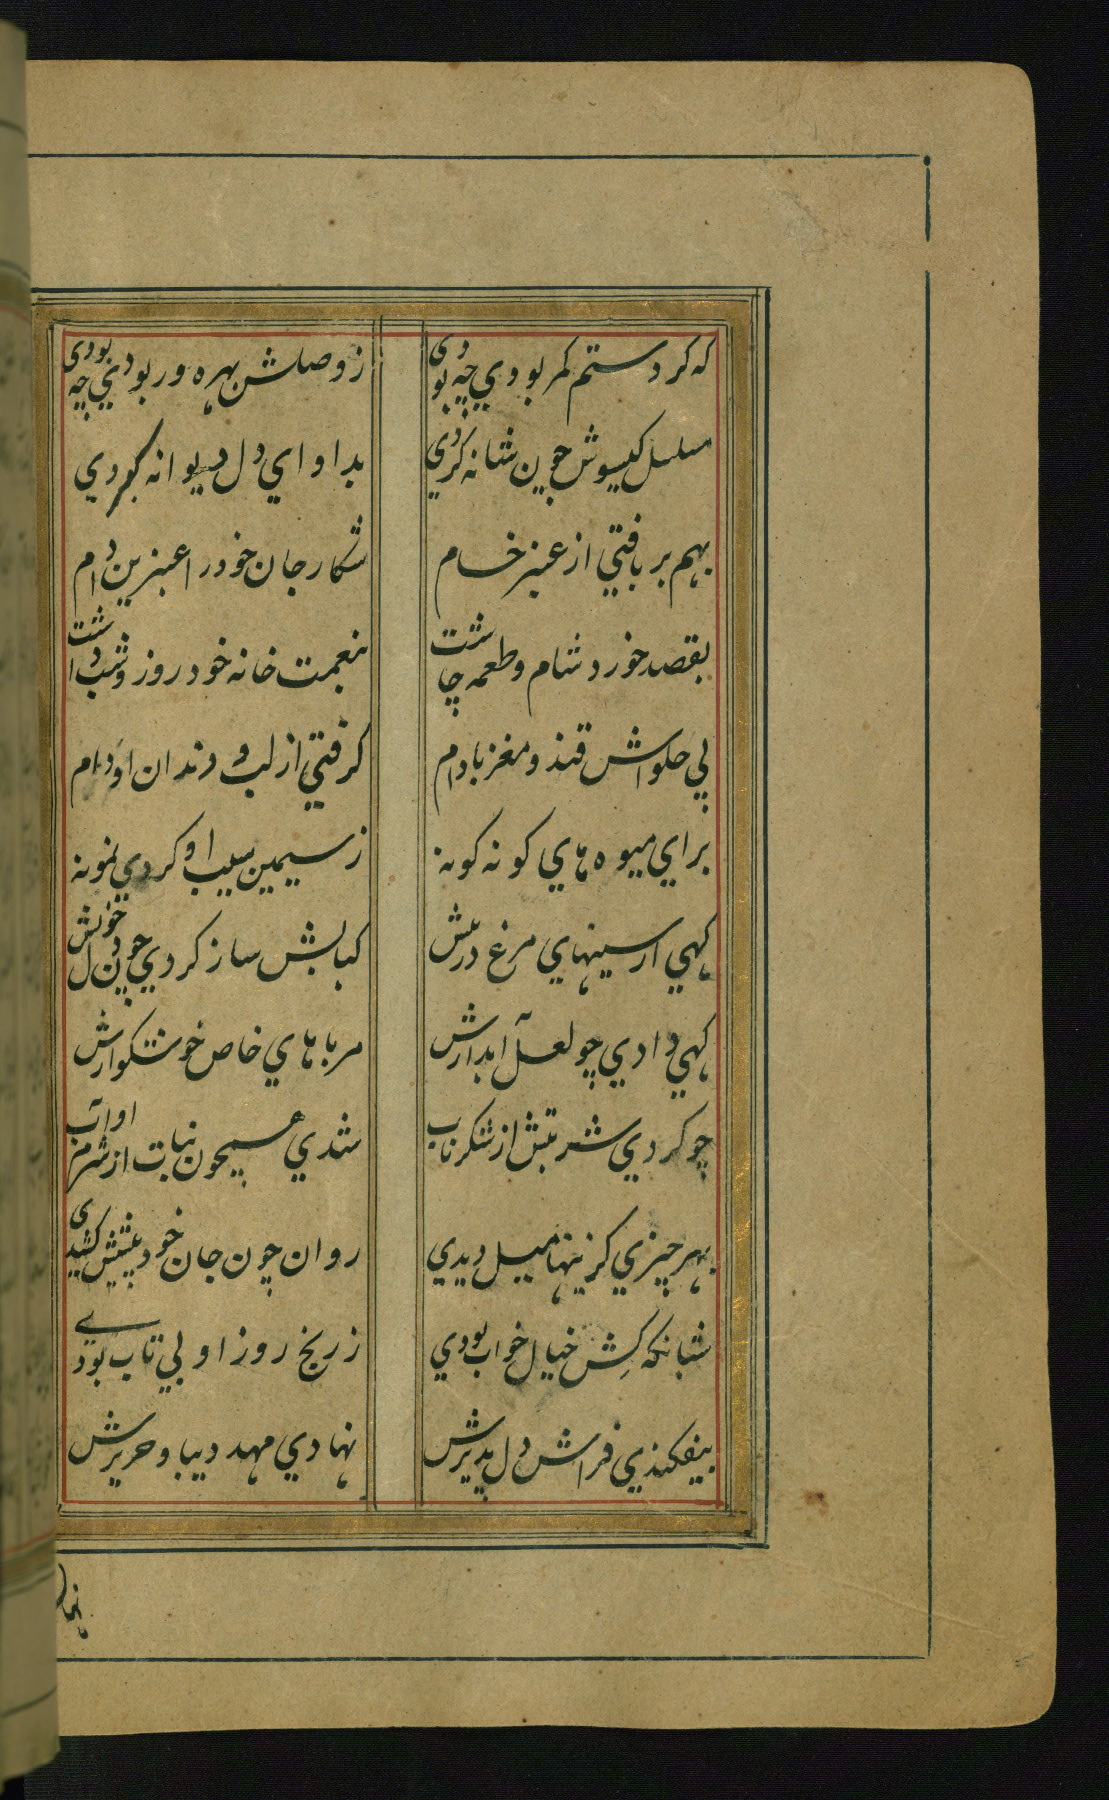 که کر دستم کمر بودی چه بودی
ز وصلش بهره ور بودی چه بودی
مسلسل کیسوش چون شانه کردی
مداوای دل دیوانه کردی
بهم بر بافتی از عنبر خام
شکار جان خود را عنبرین دام
بقصد خورد شام و طعمه چاشت
بنعمت خانه خود روز و شب داشت
پی حلواش قند و مغز بادام
کرفتی از لب و دندان او وام
برای میوه های کونه کونه
ز سیمین سیب او کردی نمونه
کهی از سینهای مرغ در پیش
کبابش ساز کردی چون دل خویش
کهی دادی چو لعل آبدارش
مرباهای خاص خوشکوارش
چو کردی شربتش از شکر ناب
شدی همچون نبات از شرم او آب
بهر چیزی کزینها میل دیدی
روان چون جان خود پیشش کشیدی
شبانکه کش خیال خواب بودی
ز رنج روز او بی تاب بودی
بیفکندی فراش دل پذیرش
نهادی مهد دیبا و حریرش
نهال